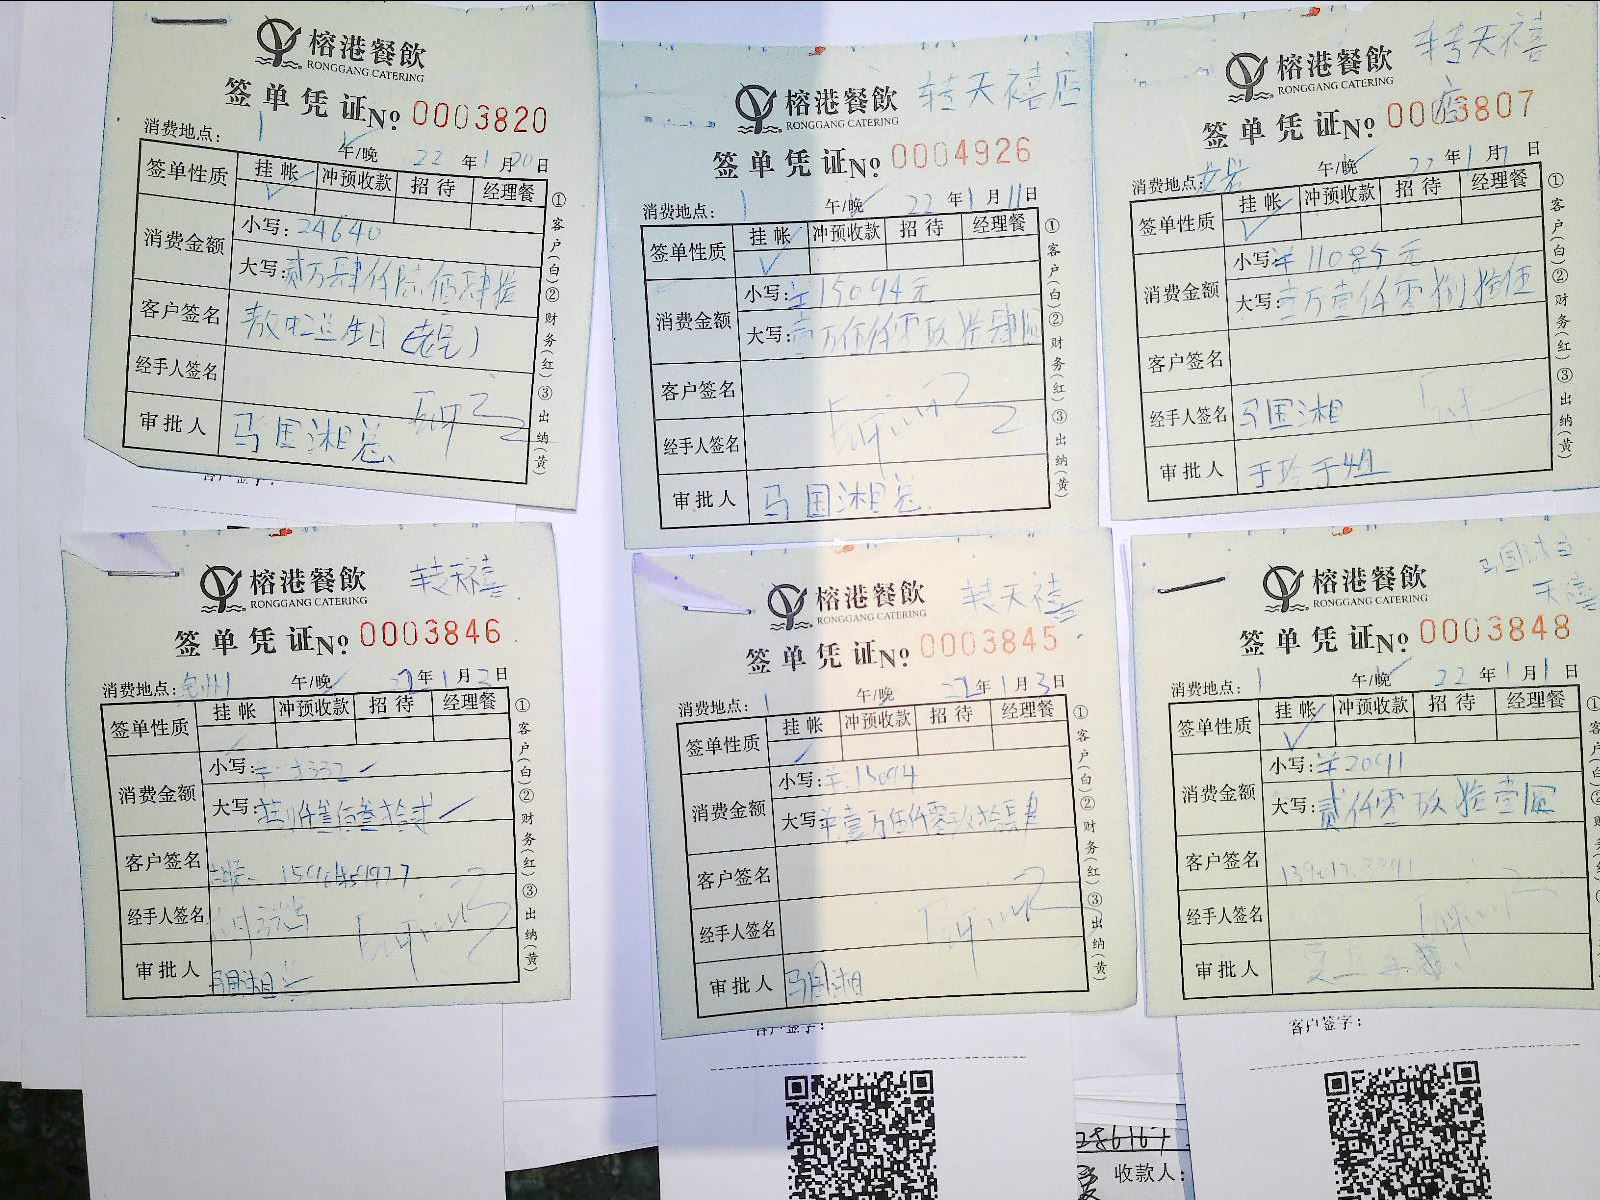 榕港餐飲
RONGGANG CATERING
签单凭证 No. 0003820
消费地点: 1 午/晚 22年1月20日
签单性质 挂帐 冲预收款 招待 经理餐
消费金额 小写: 24640
大写: 贰万肆仟陆佰肆拾
客户签名
经手人签名
审批人 马国湘总
①客户(白)②财务(红)③出纳(黄)
榕港餐飲 转天禧店
RONGGANG CATERING
签单凭证 No. 0004926
消费地点: 1 午/晚 22年1月11日
签单性质 挂帐 冲预收款 招待 经理餐
消费金额 小写: ¥15094元
大写: 壹万伍仟零玖拾肆圆
客户签名
经手人签名
审批人 马国湘总
①客户(白)②财务(红)③出纳(黄)
榕港餐飲 转天禧店
RONGGANG CATERING
签单凭证 No. 0003807
消费地点: 午/晚 22年1月7日
签单性质 挂帐 冲预收款 招待 经理餐
消费金额 小写: ¥11085元
大写: 壹万壹仟零捌拾伍
客户签名
经手人签名 马国湘
审批人
①客户(白)②财务(红)③出纳(黄)
客户签字:
榕港餐飲 转天禧
RONGGANG CATERING
签单凭证 No. 0003846
消费地点: 午/晚 22年1月3日
签单性质 挂帐 冲预收款 招待 经理餐
消费金额 小写:
大写: 捌仟叁佰叁拾贰
客户签名
经手人签名
审批人 马国湘
①客户(白)②财务(红)③出纳(黄)
榕港餐飲 转天禧
RONGGANG CATERING
签单凭证 No. 0003845
消费地点: 1 午/晚 22年1月3日
签单性质 挂帐 冲预收款 招待 经理餐
消费金额 小写: ¥15094
大写: 壹万伍仟零玖拾肆
客户签名
经手人签名
审批人 马国湘
①客户(白)②财务(红)③出纳(黄)
榕港餐飲 马国湘
天禧
RONGGANG CATERING
签单凭证 No. 0003848
消费地点: 1 午/晚 22年1月1日
签单性质 挂帐 冲预收款 招待 经理餐
消费金额 小写: ¥2091
大写: 贰仟零玖拾壹圆
客户签名
经手人签名
审批人
客户签字:
客户签字:
收款人: